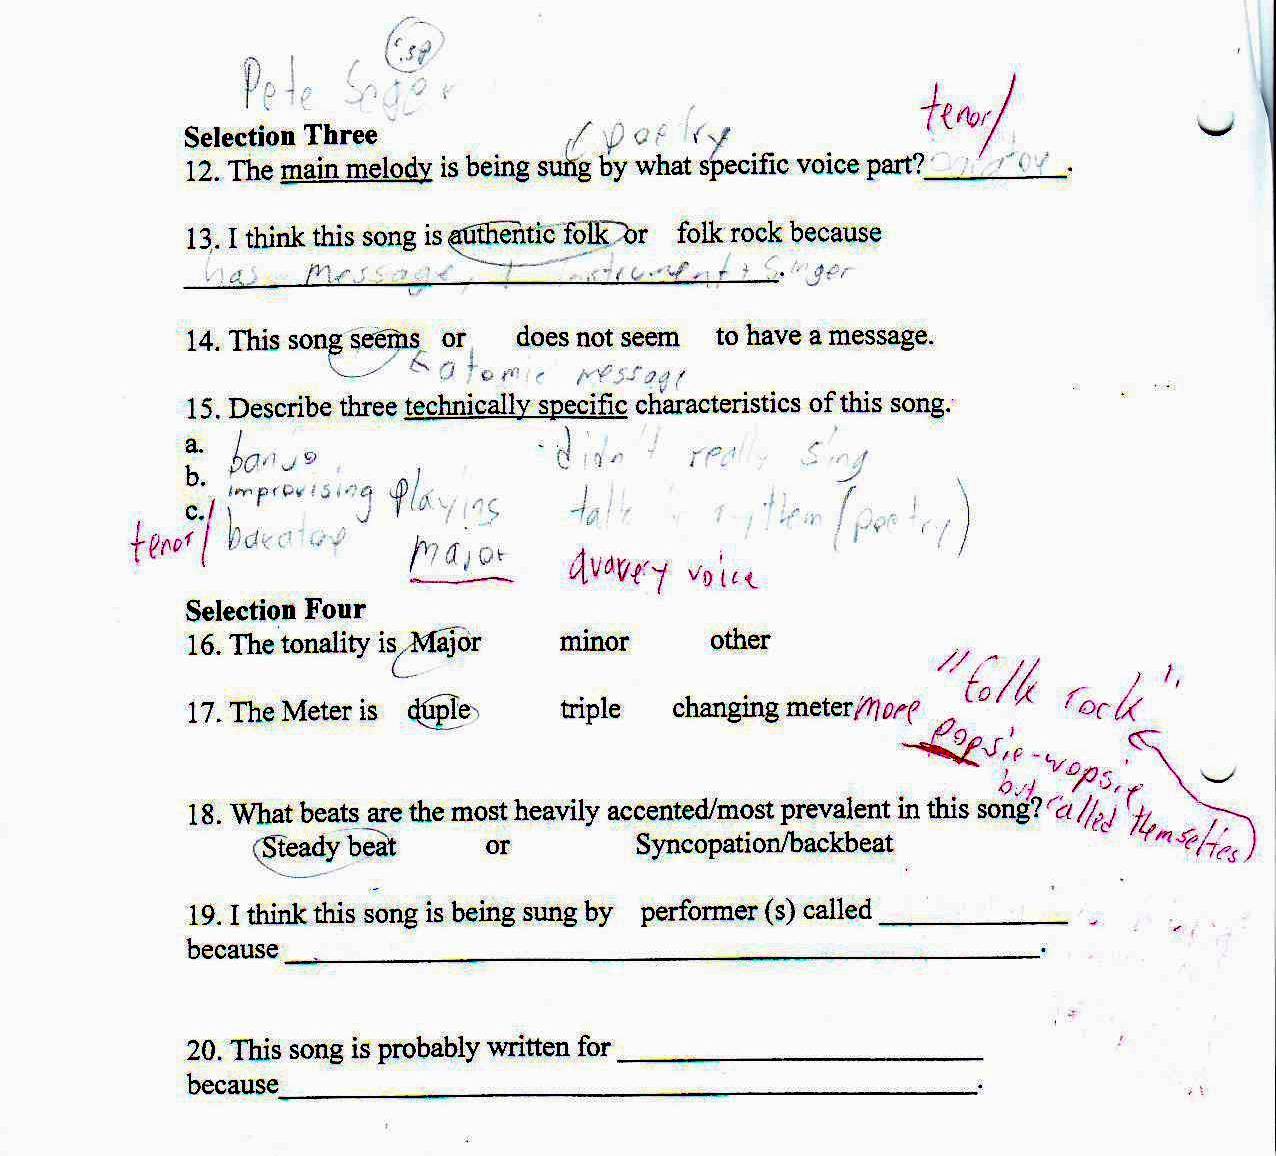 sp.
Pete Seger
Selection Three
( poetry
tenor/
12. The main melody is being sung by what specific voice part?__________.
13. I think this song is authentic folk or folk rock because
has message, 1 instrument + Singer
14. This song seems or does not seem to have a message.
& atomic message
15. Describe three technically specific characteristics of this song.
a. banjo didn't really sing
b. improvising playing talk in rythem (poetry)
c.
tenor/ major quavery voice
Selection Four
16. The tonality is Major minor other
17. The Meter is duple triple changing meter
more "folk rock"
popsie-wopsie
but called themselves)
18. What beats are the most heavily accented/most prevalent in this song?
Steady beat or Syncopation/backbeat
19. I think this song is being sung by performer (s) called ______________
because ______________________________.
20. This song is probably written for ______________
because______________________________.